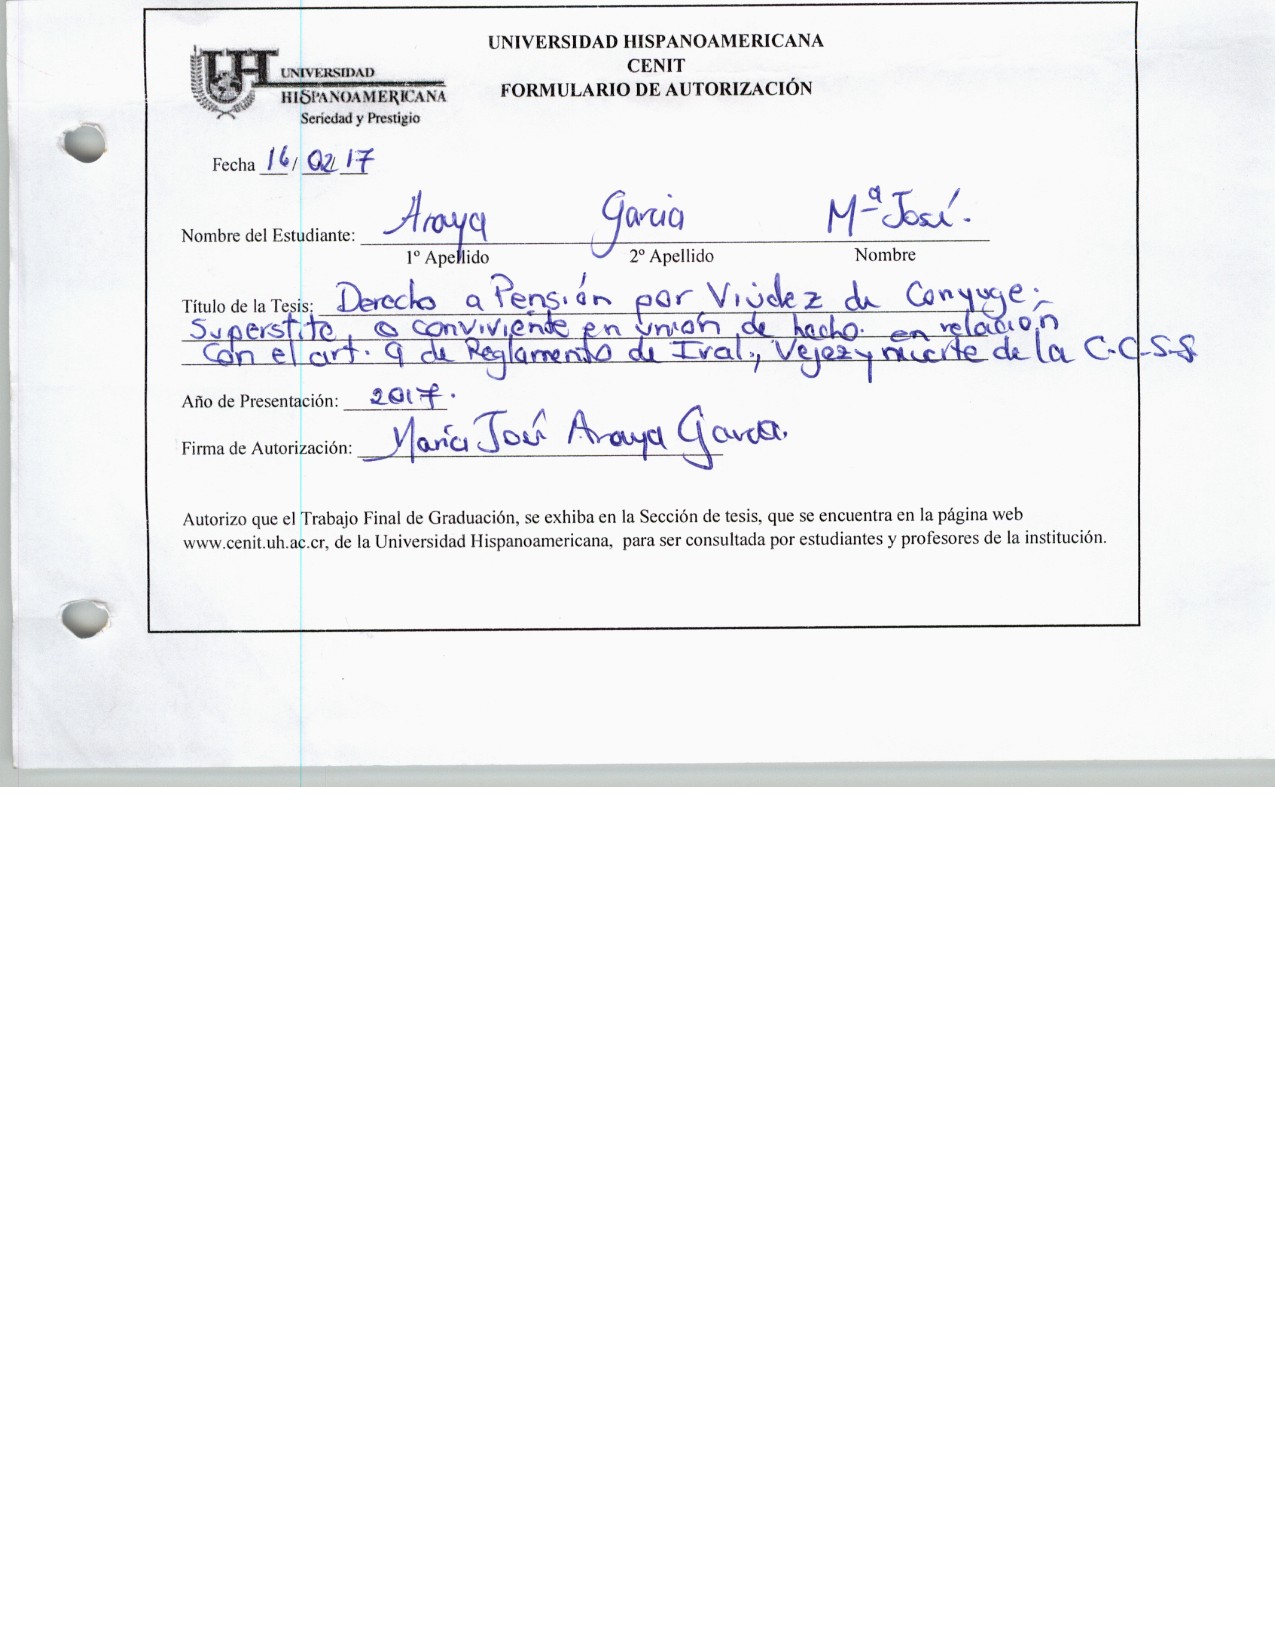 UNIVERSIDAD HISPANOAMERICANA
CENIT
FORMULARIO DE AUTORIZACIÓN
UH UNIVERSIDAD
HISPANOAMERICANA
Seriedad y Prestigio
Fecha 16/ 02/ 17
Nombre del Estudiante: Araya Garcia Mª José.
1º Apellido 2º Apellido Nombre
Título de la Tesis: Derecho a Pensión por Viudez de Conyuge
Superstite, o conviviente en unión de hecho. en relación
con el art. 9 de Reglamento de Ival., Vejez y muerte de la C.C.S.S
Año de Presentación: 2017.
Firma de Autorización: María José Araya Garcia.
Autorizo que el Trabajo Final de Graduación, se exhiba en la Sección de tesis, que se encuentra en la página web
www.cenit.uh.ac.cr, de la Universidad Hispanoamericana, para ser consultada por estudiantes y profesores de la institución.